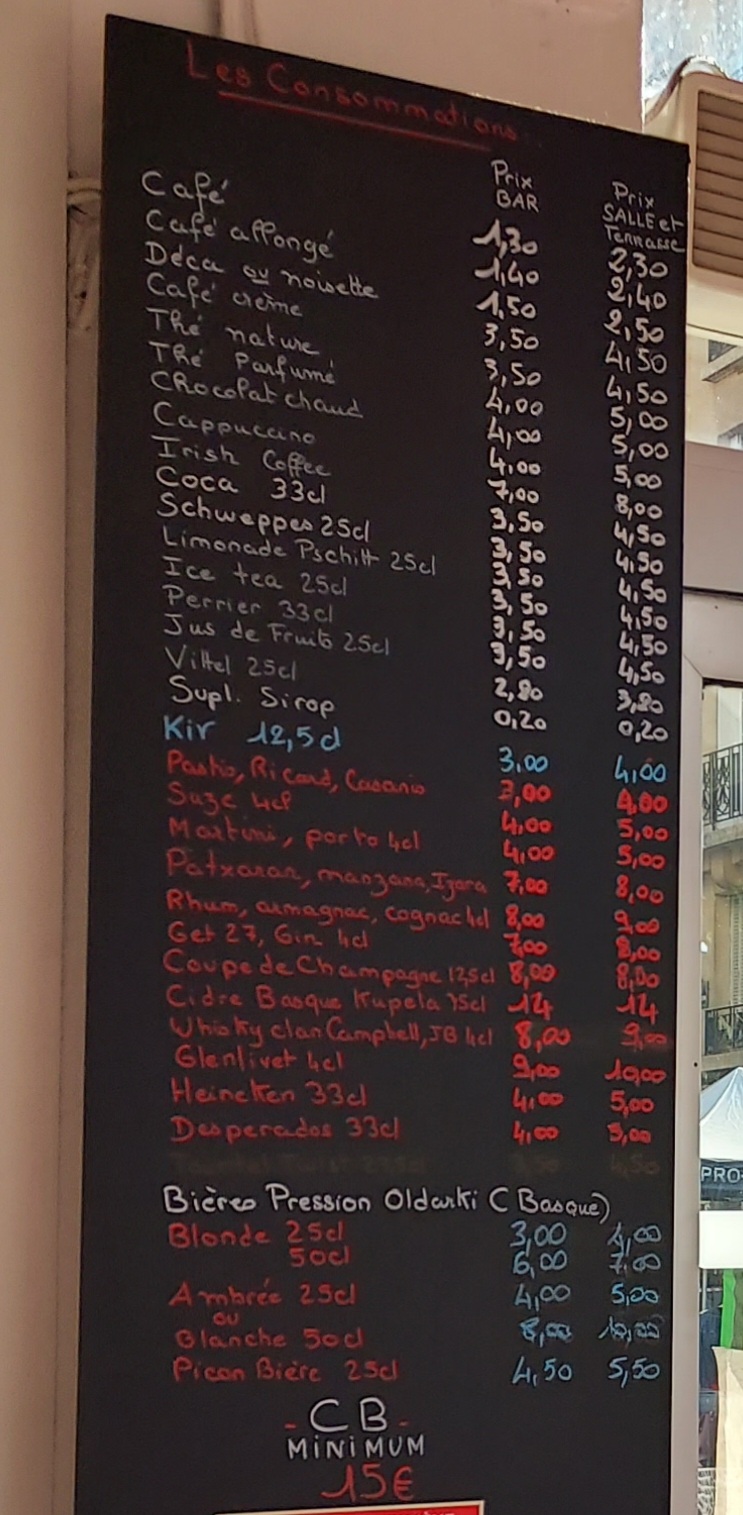 Les Consommations..
Prix BAR
Prix SALLE et Terrasse
Café 1,30 2,30
Café allongé 1,40 2,40
Déca ou noisette 1,50 2,50
Café crème 3,50 4,50
Thé nature 3,50 4,50
Thé Parfumé 4,00 5,00
Chocolat chaud 4,00 5,00
Cappuccino 4,00 5,00
Irish Coffee 7,00 8,00
Coca 33cl 3,50 4,50
Schweppes 25cl 3,50 4,50
Limonade Pschitt 25cl 3,50 4,50
Ice tea 25cl 3,50 4,50
Perrier 33cl 3,50 4,50
Jus de Fruits 25cl 3,50 4,50
Vittel 25cl 2,80 3,80
Supl. Sirop 0,20 0,20
Kir 12,5cl 3.00 4,00
Pastis, Ricard, Casanis 3,00 4,00
Suze 4cl 4,00 5,00
Martini, porto 4cl 4,00 5,00
Patxaran, manzana, Izara 7,00 8,00
Rhum, armagnac, cognac 4cl 8,00 9,00
Get 27, Gin 4cl 7,00 8,00
Coupe de Champagne 12,5cl 8,00 8,00
Cidre Basque Kupela 75cl 14 14
Whisky clan Campbell, JB 4cl 8,00 9,00
Glenlivet 4cl 9,00 10,00
Heineken 33cl 4,00 5,00
Desperados 33cl 4,00 5,00
Bières Pression Oldarki (Basque)
Blonde 25cl 3,00 4,00
50cl 6,00 7,00
Ambrée 25cl 4,00 5,00
ou
Blanche 50cl 8,00 10,00
Picon Bière 25cl 4,50 5,50
- CB -
MINIMUM
15€
PRO-